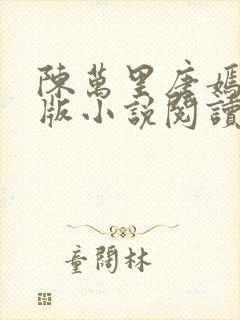 陳萬里唐嫣
版小說閱讀
童闊林